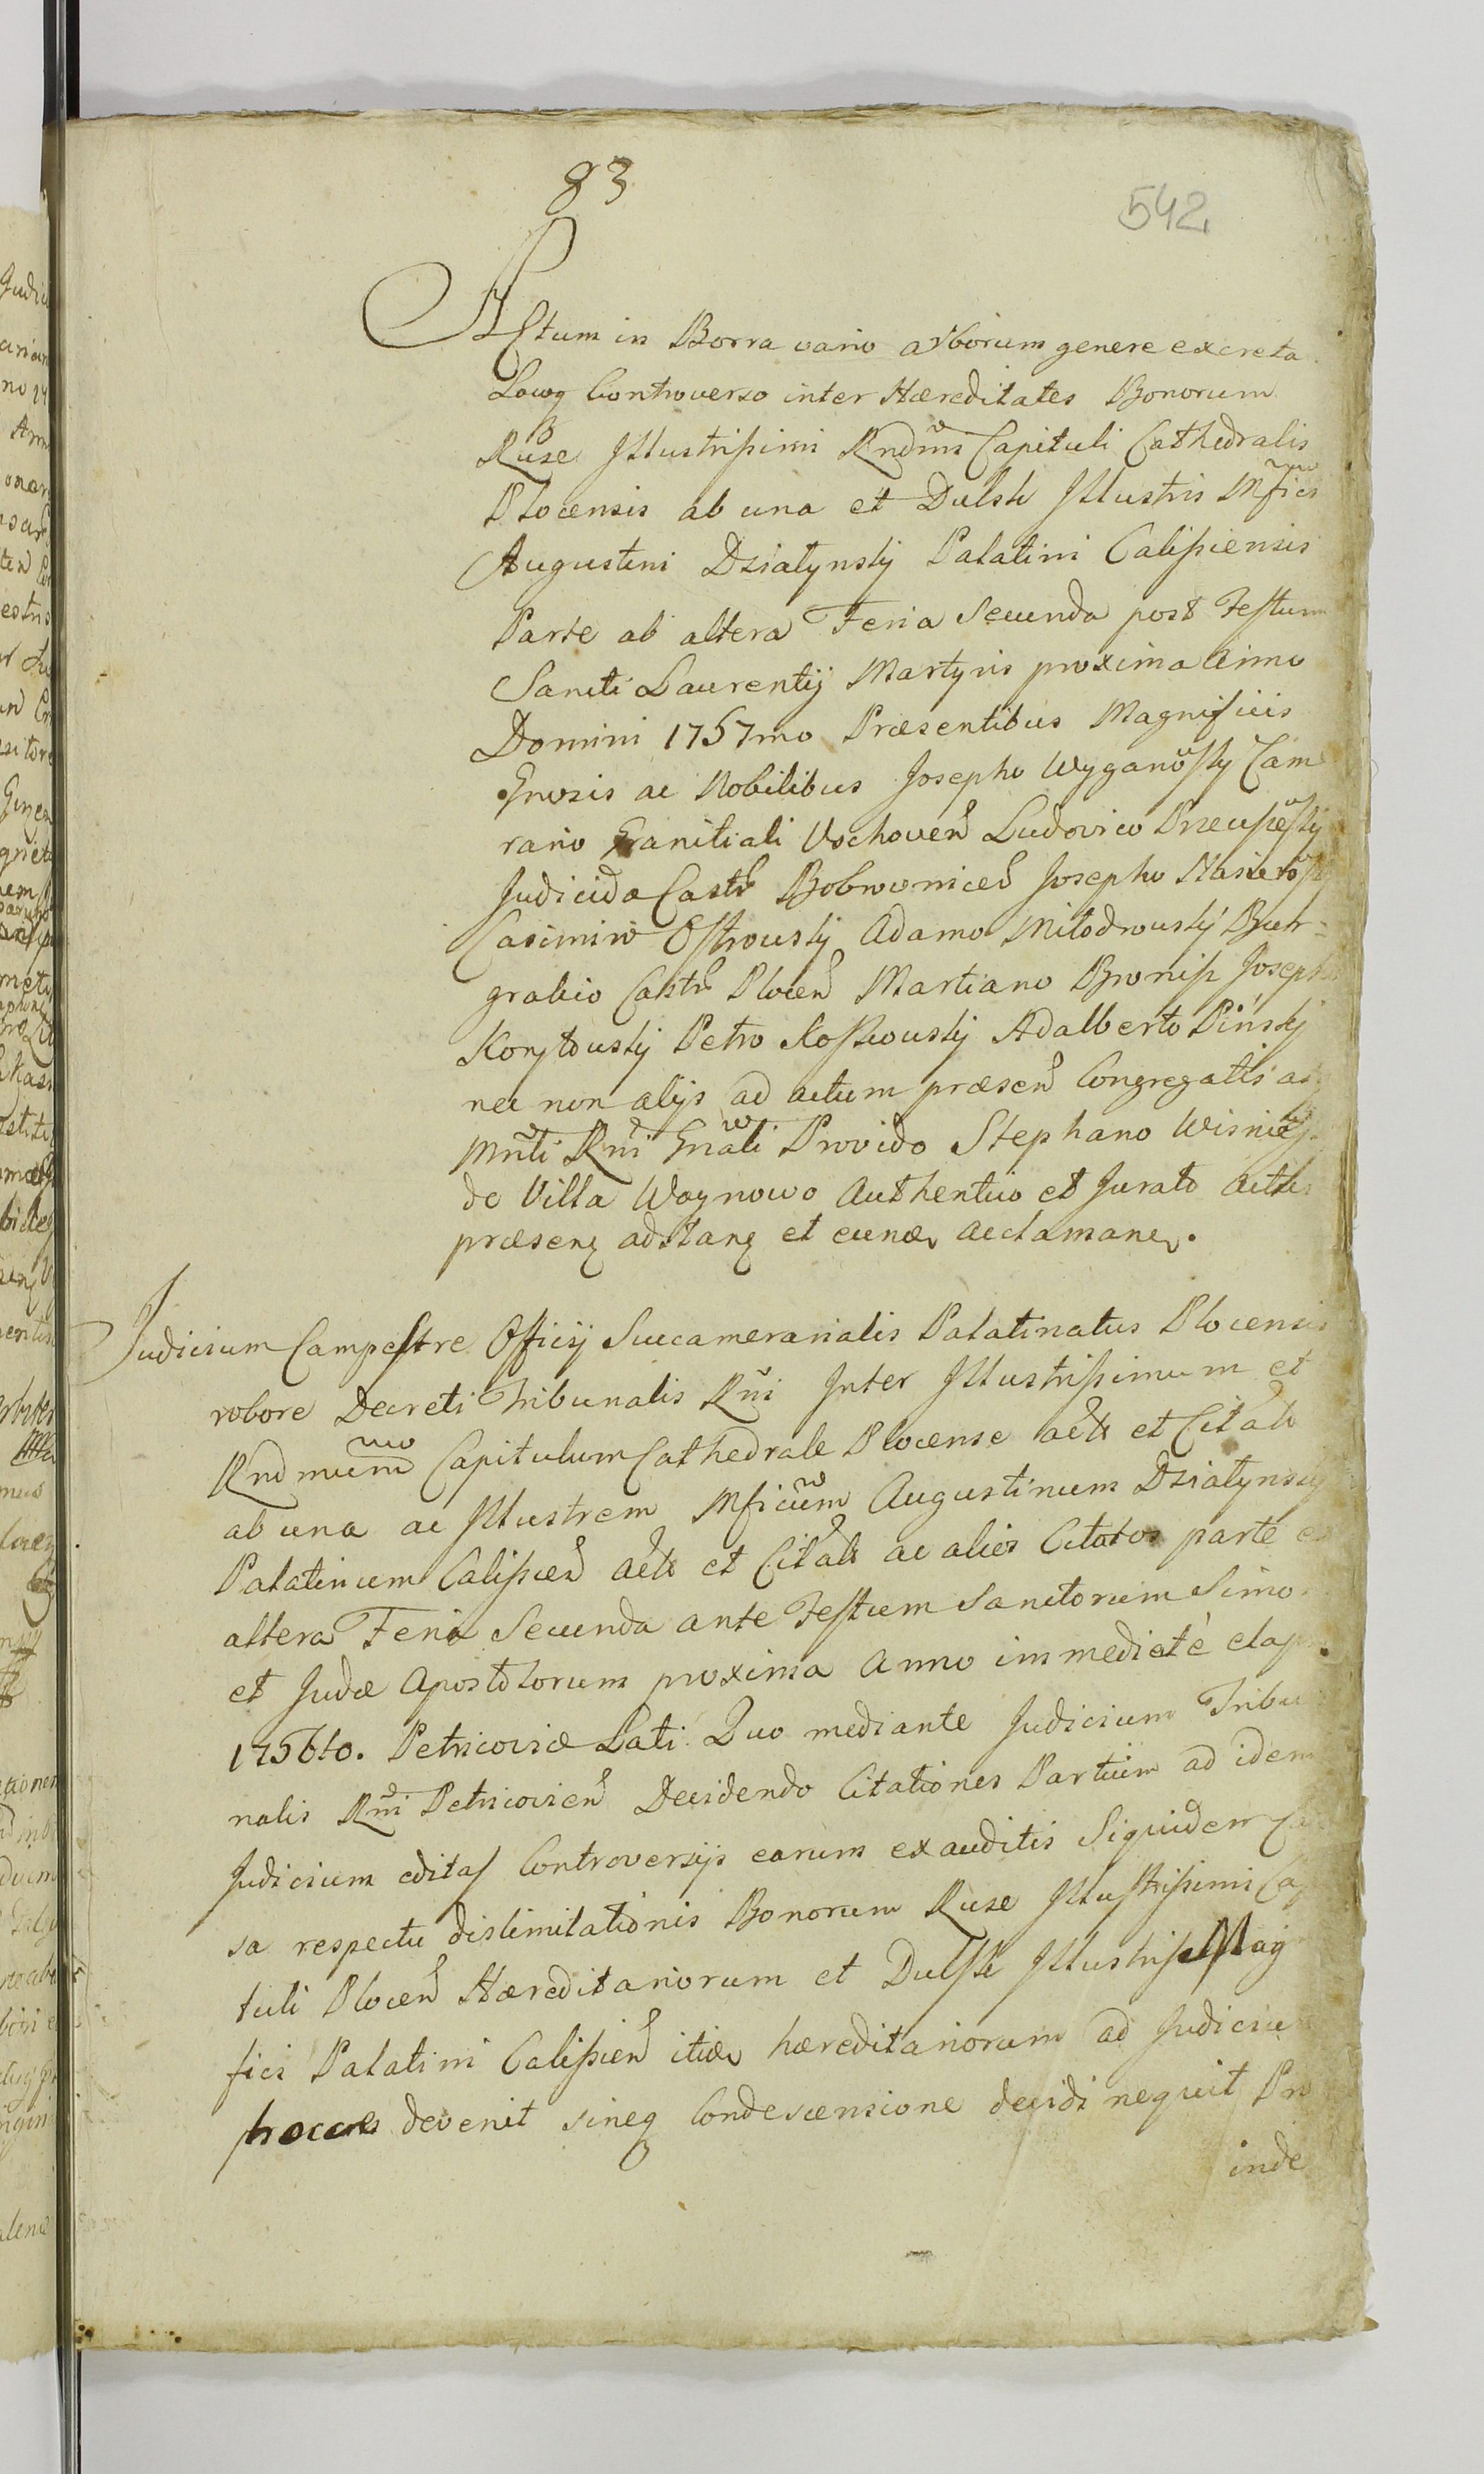 83
542
Actum in Borra vario arborum genere excreta
Locoq Controverso inter Hæreditates Bonorum
Ruse Illustrissimi Rndmi Capituli Cathedralis
Plocensis ab una et Dulsk Illustris Mfici
Augustini Dziatynskij Palatini Calissiensis
Parte ab altera Feria Secunda post Festum
Sancti Laurentij Martyris proxima Anno
Domini 1757mo Præsentibus Magnificis
Gnrosis ac Nobilibus Josepho Wyganowskij Came
rario Granitiali Vschoven Ludovico
Judicida Castr Bobrownicen Josepho
Casimiro Ostrowskij Adamo Mitodrowskij Bur=
grabio Castr Plocen Martiano Bronisz Josepho
Korytowskij Petro Koszkowskij Adalberto Pinskij
nec non alijs ad actum præsen Congregatis
Mnti Rni Gnali Provido Stephano
de Villa Woynowo Authentico et Jurato
præsenq adstanq et eunde acclamane.
Judicium Campestre Officij Succamerarialis Palatinatus Plocensis
robore Decreti Tribunalis Rni Inter Illustrissimum et
Rndmum Capitulum Cathedrale Plocense act et Citat
ab una ac Illustrem Mficum Augustinum Dziatynskij
Palatinum Calissien act et Citat ac alios Citatos parte
altera Feria Secunda ante Festum Sanctorum Simo
et Judæ Apostolorum proxima Anno immediatè
1756to. Petricoviæ Lati. Quo mediante Judicium Tribu
nalis Rni Petricovien Decidendo Citationes Partium ad idem
Judicium editas Controversijs earum exauditis Siquidem
sa respectu dislimitationis Bonorum Ruse Illustrissimi
tuli Plocen Hæreditariorum et Dulsk Illustris Mag
fici Palatini Calissien hæreditariorum ad Judicium
devenit sineq Condescensione decidi nequit Pro
inde